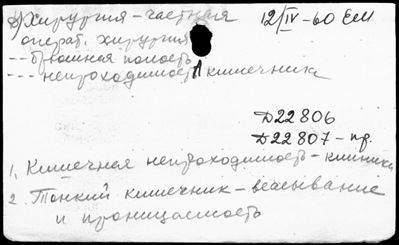 Хирургия - частная 12/IV-60 ЕМ
операт. хирургия
-- брюшная полость
--- непроходимость кишечника
Д22806
Д22807-пр.
1. Кишечная непроходимость - клиника
2. Тонкий кишечник - всасывание
и проницаемость